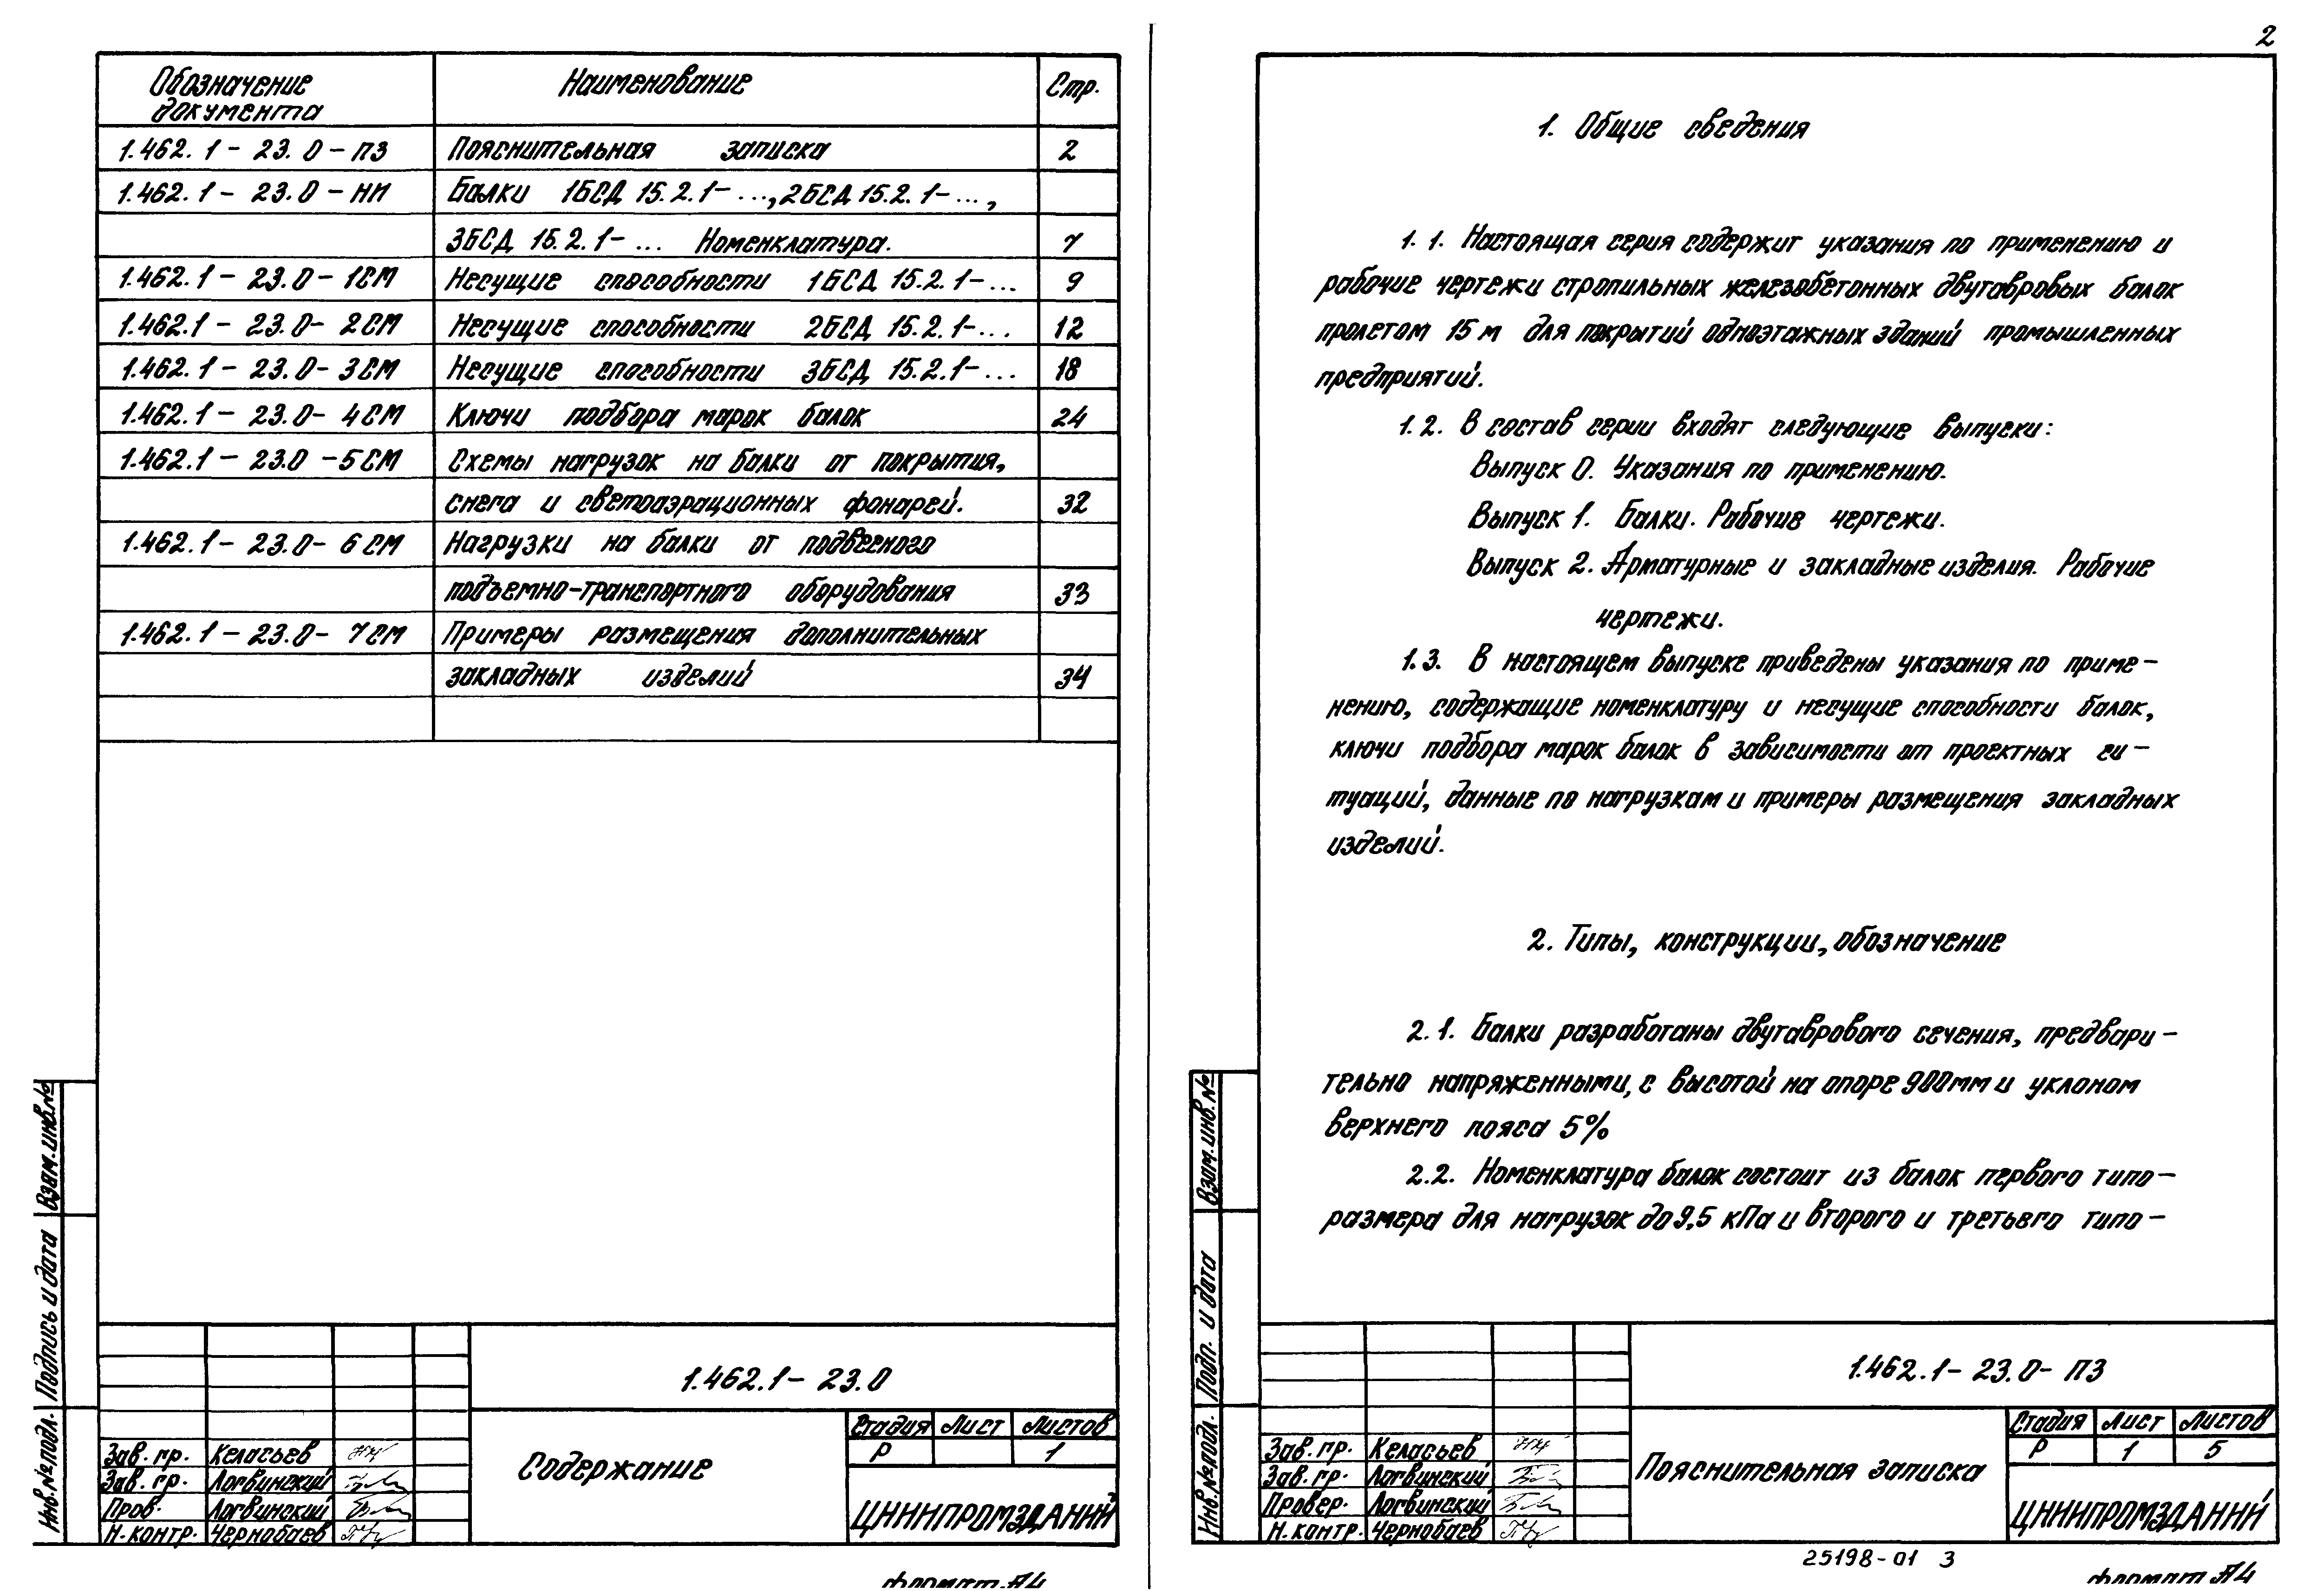 Обозначение документа Наименование Стр.
1.462.1-23.0-ПЗ Пояснительная записка 2
1.462.1-23.0-НИ Балки 1БСД 15.2.1-..., 2БСД 15.2.1-...,
3БСД 15.2.1-... Номенклатура. 7
1.462.1-23.0-1СМ Несущие способности 1БСД 15.2.1-... 9
1.462.1-23.0-2СМ Несущие способности 2БСД 15.2.1-... 12
1.462.1-23.0-3СМ Несущие способности 3БСД 15.2.1-... 18
1.462.1-23.0-4СМ Ключи подбора марок балок 24
1.462.1-23.0-5СМ Схемы нагрузок на балки от покрытия,
снега и светоаэрационных фонарей. 32
1.462.1-23.0-6СМ Нагрузки на балки от подвесного
подъемно-транспортного оборудования 33
1.462.1-23.0-7СМ Примеры размещения дополнительных
закладных изделий 34
Взам.инв.№
Подпись и дата
Инв.№подл.
1.462.1-23.0
Содержание
Стадия Лист Листов
Р 1
ЦНИИПРОМЗДАНИЙ
Зав.гр. Келасьев
Зав.гр. Логвинский
Пров. Логвинский
Н.контр. Чернобаев
Формат А4
2
1. Общие сведения
1.1. Настоящая серия содержит указания по применению и
рабочие чертежи стропильных железобетонных двутавровых балок
пролетом 15 м для покрытий одноэтажных зданий промышленных
предприятий.
1.2. В состав серии входят следующие выпуски:
Выпуск 0. Указания по применению.
Выпуск 1. Балки. Рабочие чертежи.
Выпуск 2. Арматурные и закладные изделия. Рабочие
чертежи.
1.3. В настоящем выпуске приведены указания по приме-
нению, содержащие номенклатуру и несущие способности балок,
ключи подбора марок балок в зависимости от проектных си-
туаций, данные по нагрузкам и примеры размещения закладных
изделий.
2. Типы, конструкции, обозначение
2.1. Балки разработаны двутаврового сечения, предвари-
тельно напряженными, с высотой на опоре 900мм и уклоном
верхнего пояса 5%
2.2. Номенклатура балок состоит из балок первого типо-
размера для нагрузок до 9,5 кПа и второго и третьего типо-
Взам.инв.№
Подп. и дата
Инв.№подл.
1.462.1-23.0-ПЗ
Пояснительная записка
Стадия Лист Листов
Р 1 5
ЦНИИПРОМЗДАНИЙ
Зав.гр. Келасьев
Зав.гр. Логвинский
Провер. Логвинский
Н.контр. Чернобаев
25198-01 3
Формат А4